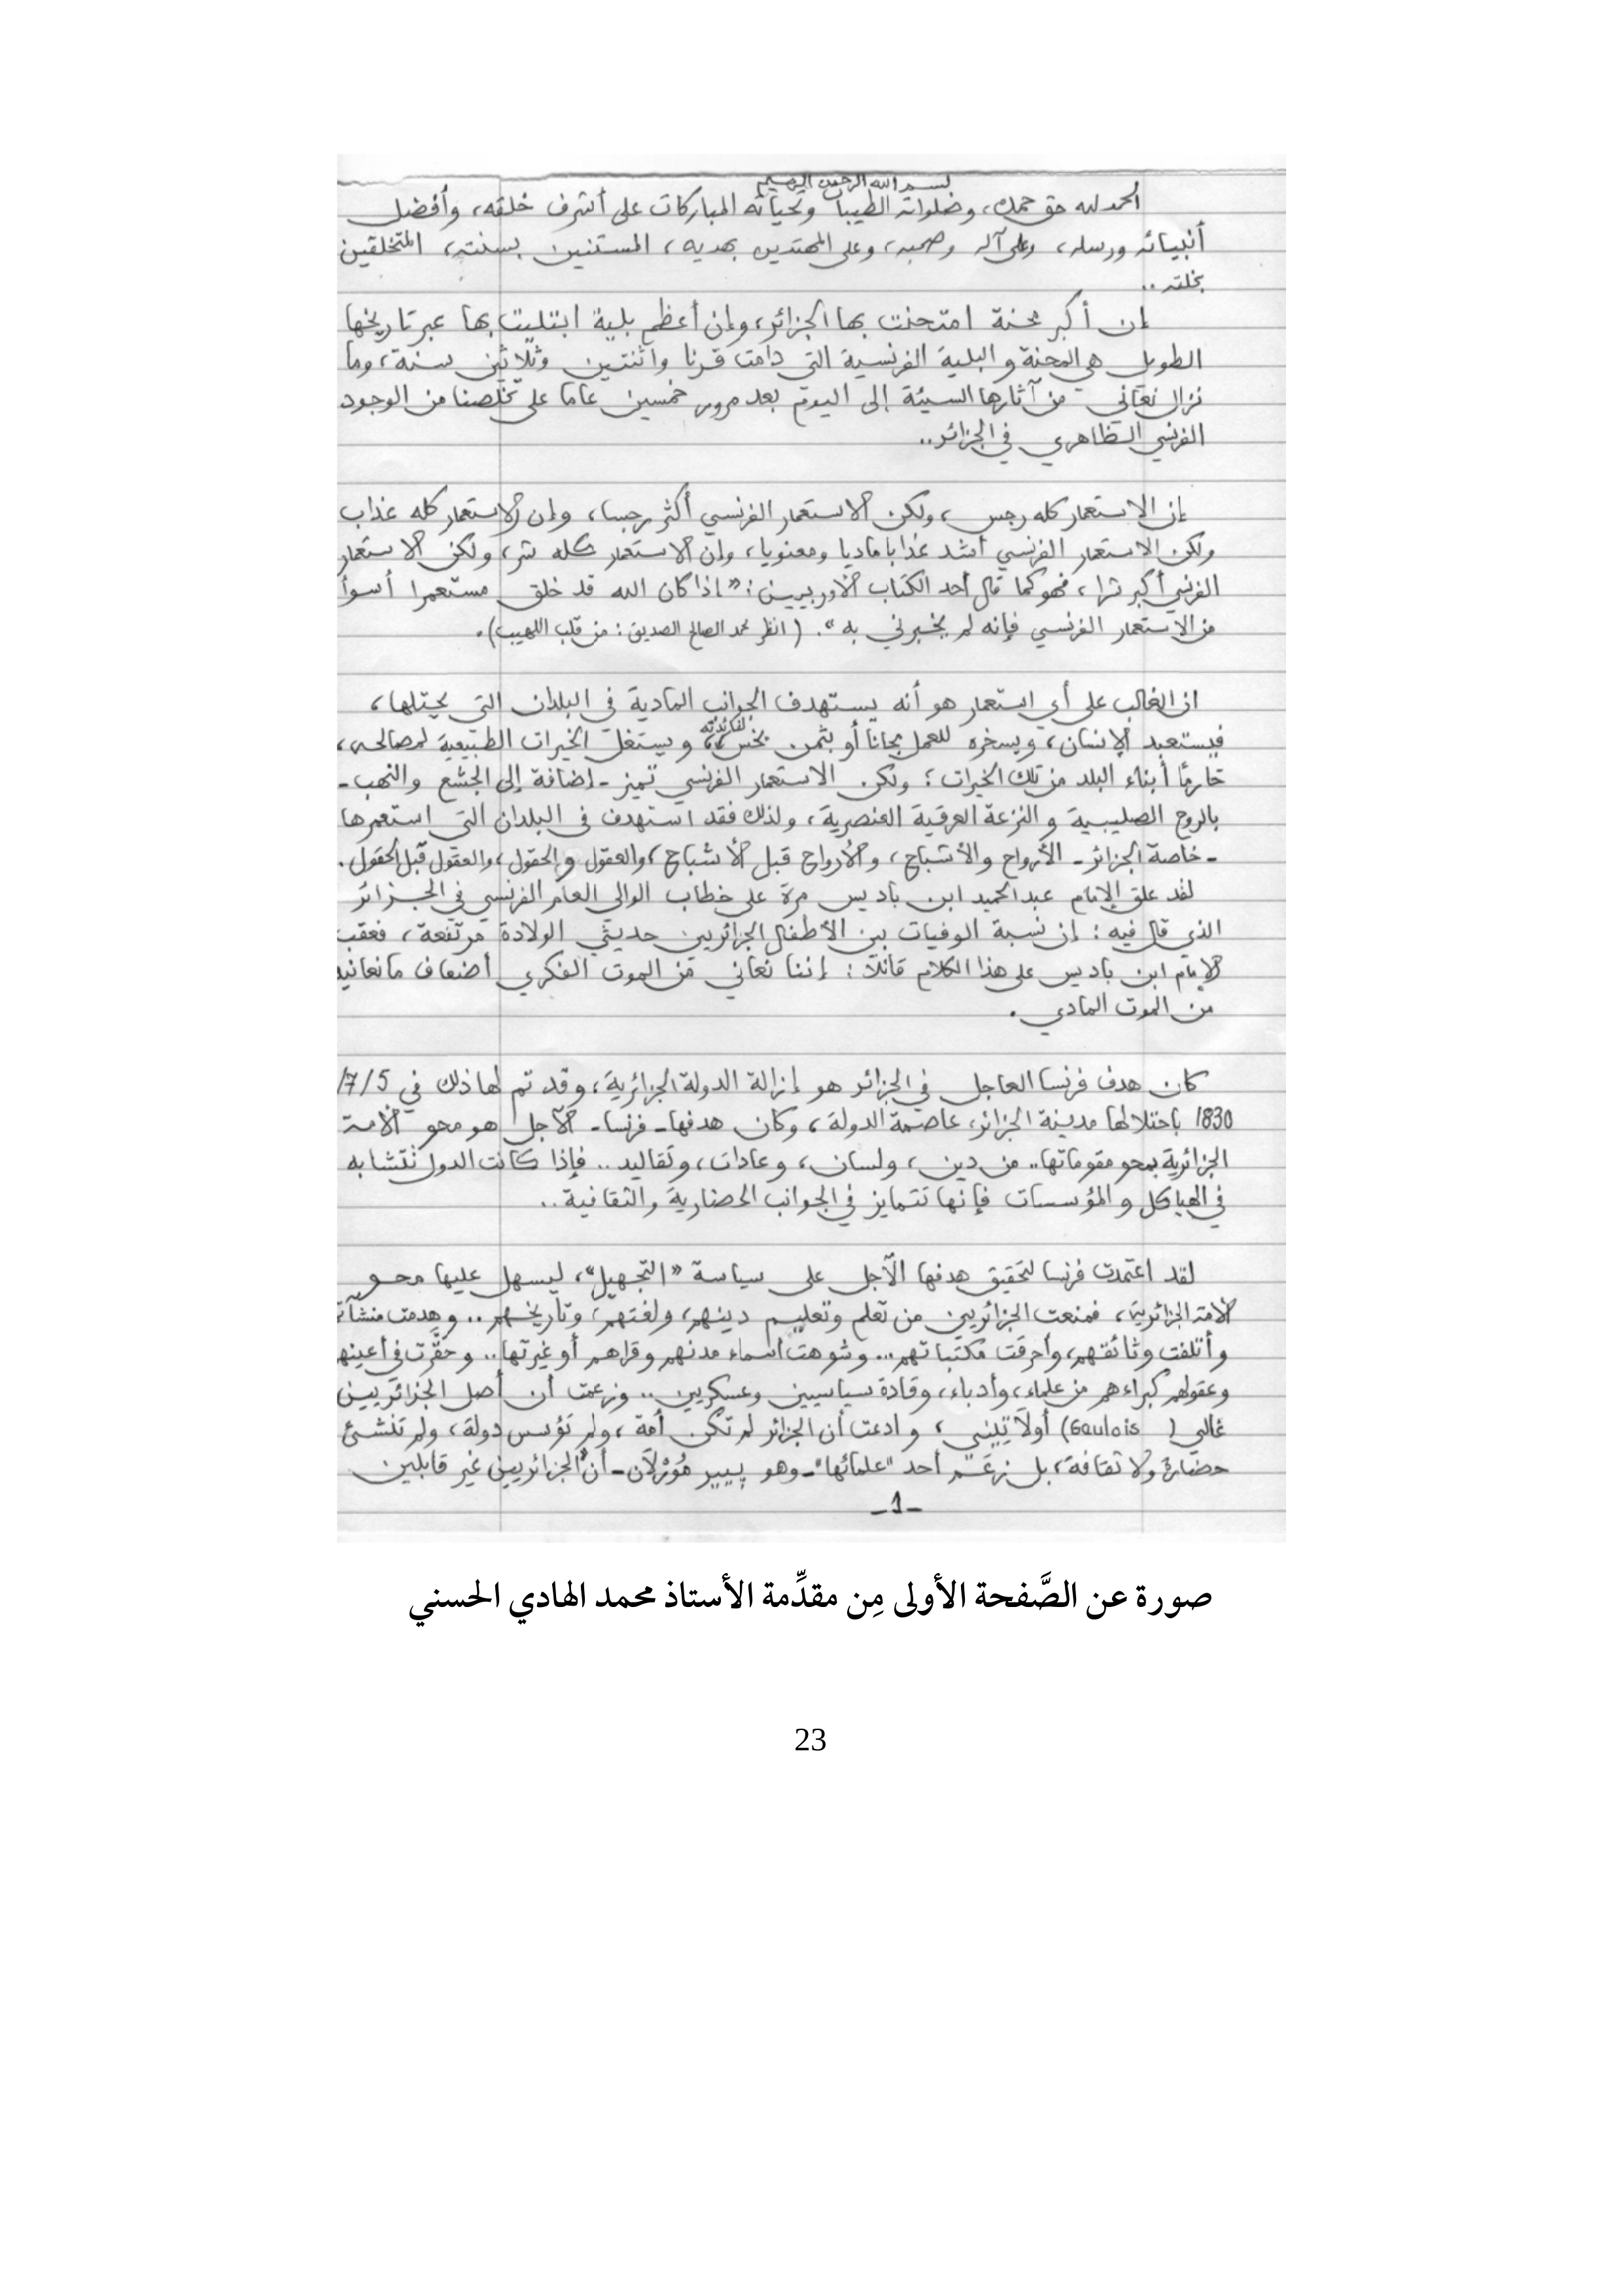 بسم الله الرحمن الرحيم
الحمد لله حق حمده، وصلواته الطيبات وتحياته المباركات على أشرف خلقه، وأفضل
أنبيائه ورسله، وعلى آله وصحبه، وعلى المهتدين بهديه، المستنين بسنته، المتخلقين
بخلقه..
إن أكبر محنة امتحنت بها الجزائر، وإن أعظم بلية ابتليت بها عبر تاريخها
الطويل هي المحنة و البلية الفرنسية التي دامت قرنا واثنتين وثلاثين سنة، وما
نزال نعاني من آثارها السيئة إلى اليوم بعد مرور خمسين عاما على تخلصنا من الوجود
الفرنسي الظاهري في الجزائر..
إن الاستعمار كله رجس، ولكن الاستعمار الفرنسي أكثر رجسا، وإن الاستعمار كله عذاب
ولكن الاستعمار الفرنسي أشد عذابا ماديا ومعنويا، وإن الاستعمار كله شر، ولكن الاستعمار
الفرنسي أكبر شرا، فهو كما قال أحد الكتاب الأوربيين: «إذا كان الله قد خلق مستعمرا أسوأ
من الاستعمار الفرنسي فإنه لم يخبرني به». (انظر محمد الصالح الصديق: من قلب اللهيب).
ان الغالب على أي استعمار هو أنه يستهدف الجوانب المادية في البلدان التي يحتلها،
فيستعبد الإنسان، ويسخره للعمل مجانا أو بثمن بخس لفائدته، ويستغل الخيرات الطبيعية لمصالحه،
حارما أبناء البلد من تلك الخيرات؛ ولكن الاستعمار الفرنسي تميز - إضافة إلى الجشع والنهب -
بالروح الصليبية و النزعة العرقية العنصرية، ولذلك فقد استهدف في البلدان التي استعمرها
- خاصة الجزائر - الأرواح والأشباح، والأرواح قبل الأشباح، والعقول والحقول، والعقول قبل الحقول.
لقد علق الإمام عبد الحميد ابن باديس مرة على خطاب الوالي العام الفرنسي في الجزائر
الذي قال فيه: إن نسبة الوفيات بين الأطفال الجزائريين حديثي الولادة مرتفعة، فعقب
الإمام ابن باديس على هذا الكلام قائلا: إننا نعاني من الموت الفكري أضعاف ما نعانيه
من الموت المادي.
كان هدف فرنسا العاجل في الجزائر هو إزالة الدولة الجزائرية، وقد تم لها ذلك في 5/7/
1830 باحتلالها مدينة الجزائر، عاصمة الدولة، وكان هدفها - فرنسا - الآجل هو محو الأمة
الجزائرية بمحو مقوماتها.. من دين، ولسان، وعادات، وتقاليد.. فإذا كانت الدول تتشابه
في الهياكل و المؤسسات فإنها تتمايز في الجوانب الحضارية والثقافية..
لقد اعتمدت فرنسا لتحقيق هدفها الآجل على سياسة «التجهيل»، ليسهل عليها محو
الأمة الجزائرية، فمنعت الجزائريين من تعلم وتعليم دينهم، ولغتهم، وتاريخهم.. وهدمت منشآتهم
وأتلفت وثائقهم، وأحرقت مكتباتهم... وشوهت أسماء مدنهم وقراهم أو غيرتها.. وحقّرت في أعينهم
وعقولهم كبراءهم من علماء، وأدباء، وقادة سياسيين وعسكريين.. وزعمت أن أصل الجزائريين
غالي (Gaulois) أو لاتيني، وادعت أن الجزائر لم تكن أمة، ولم تؤسس دولة، ولم تنشئ
حضارة ولا ثقافة، بل زعم أحد "علمائها" - وهو پيير مورلان - أن "الجزائريين غير قابلين
-1-
صورة عن الصَّفحة الأولى مِن مقدِّمة الأستاذ محمد الهادي الحسني
23